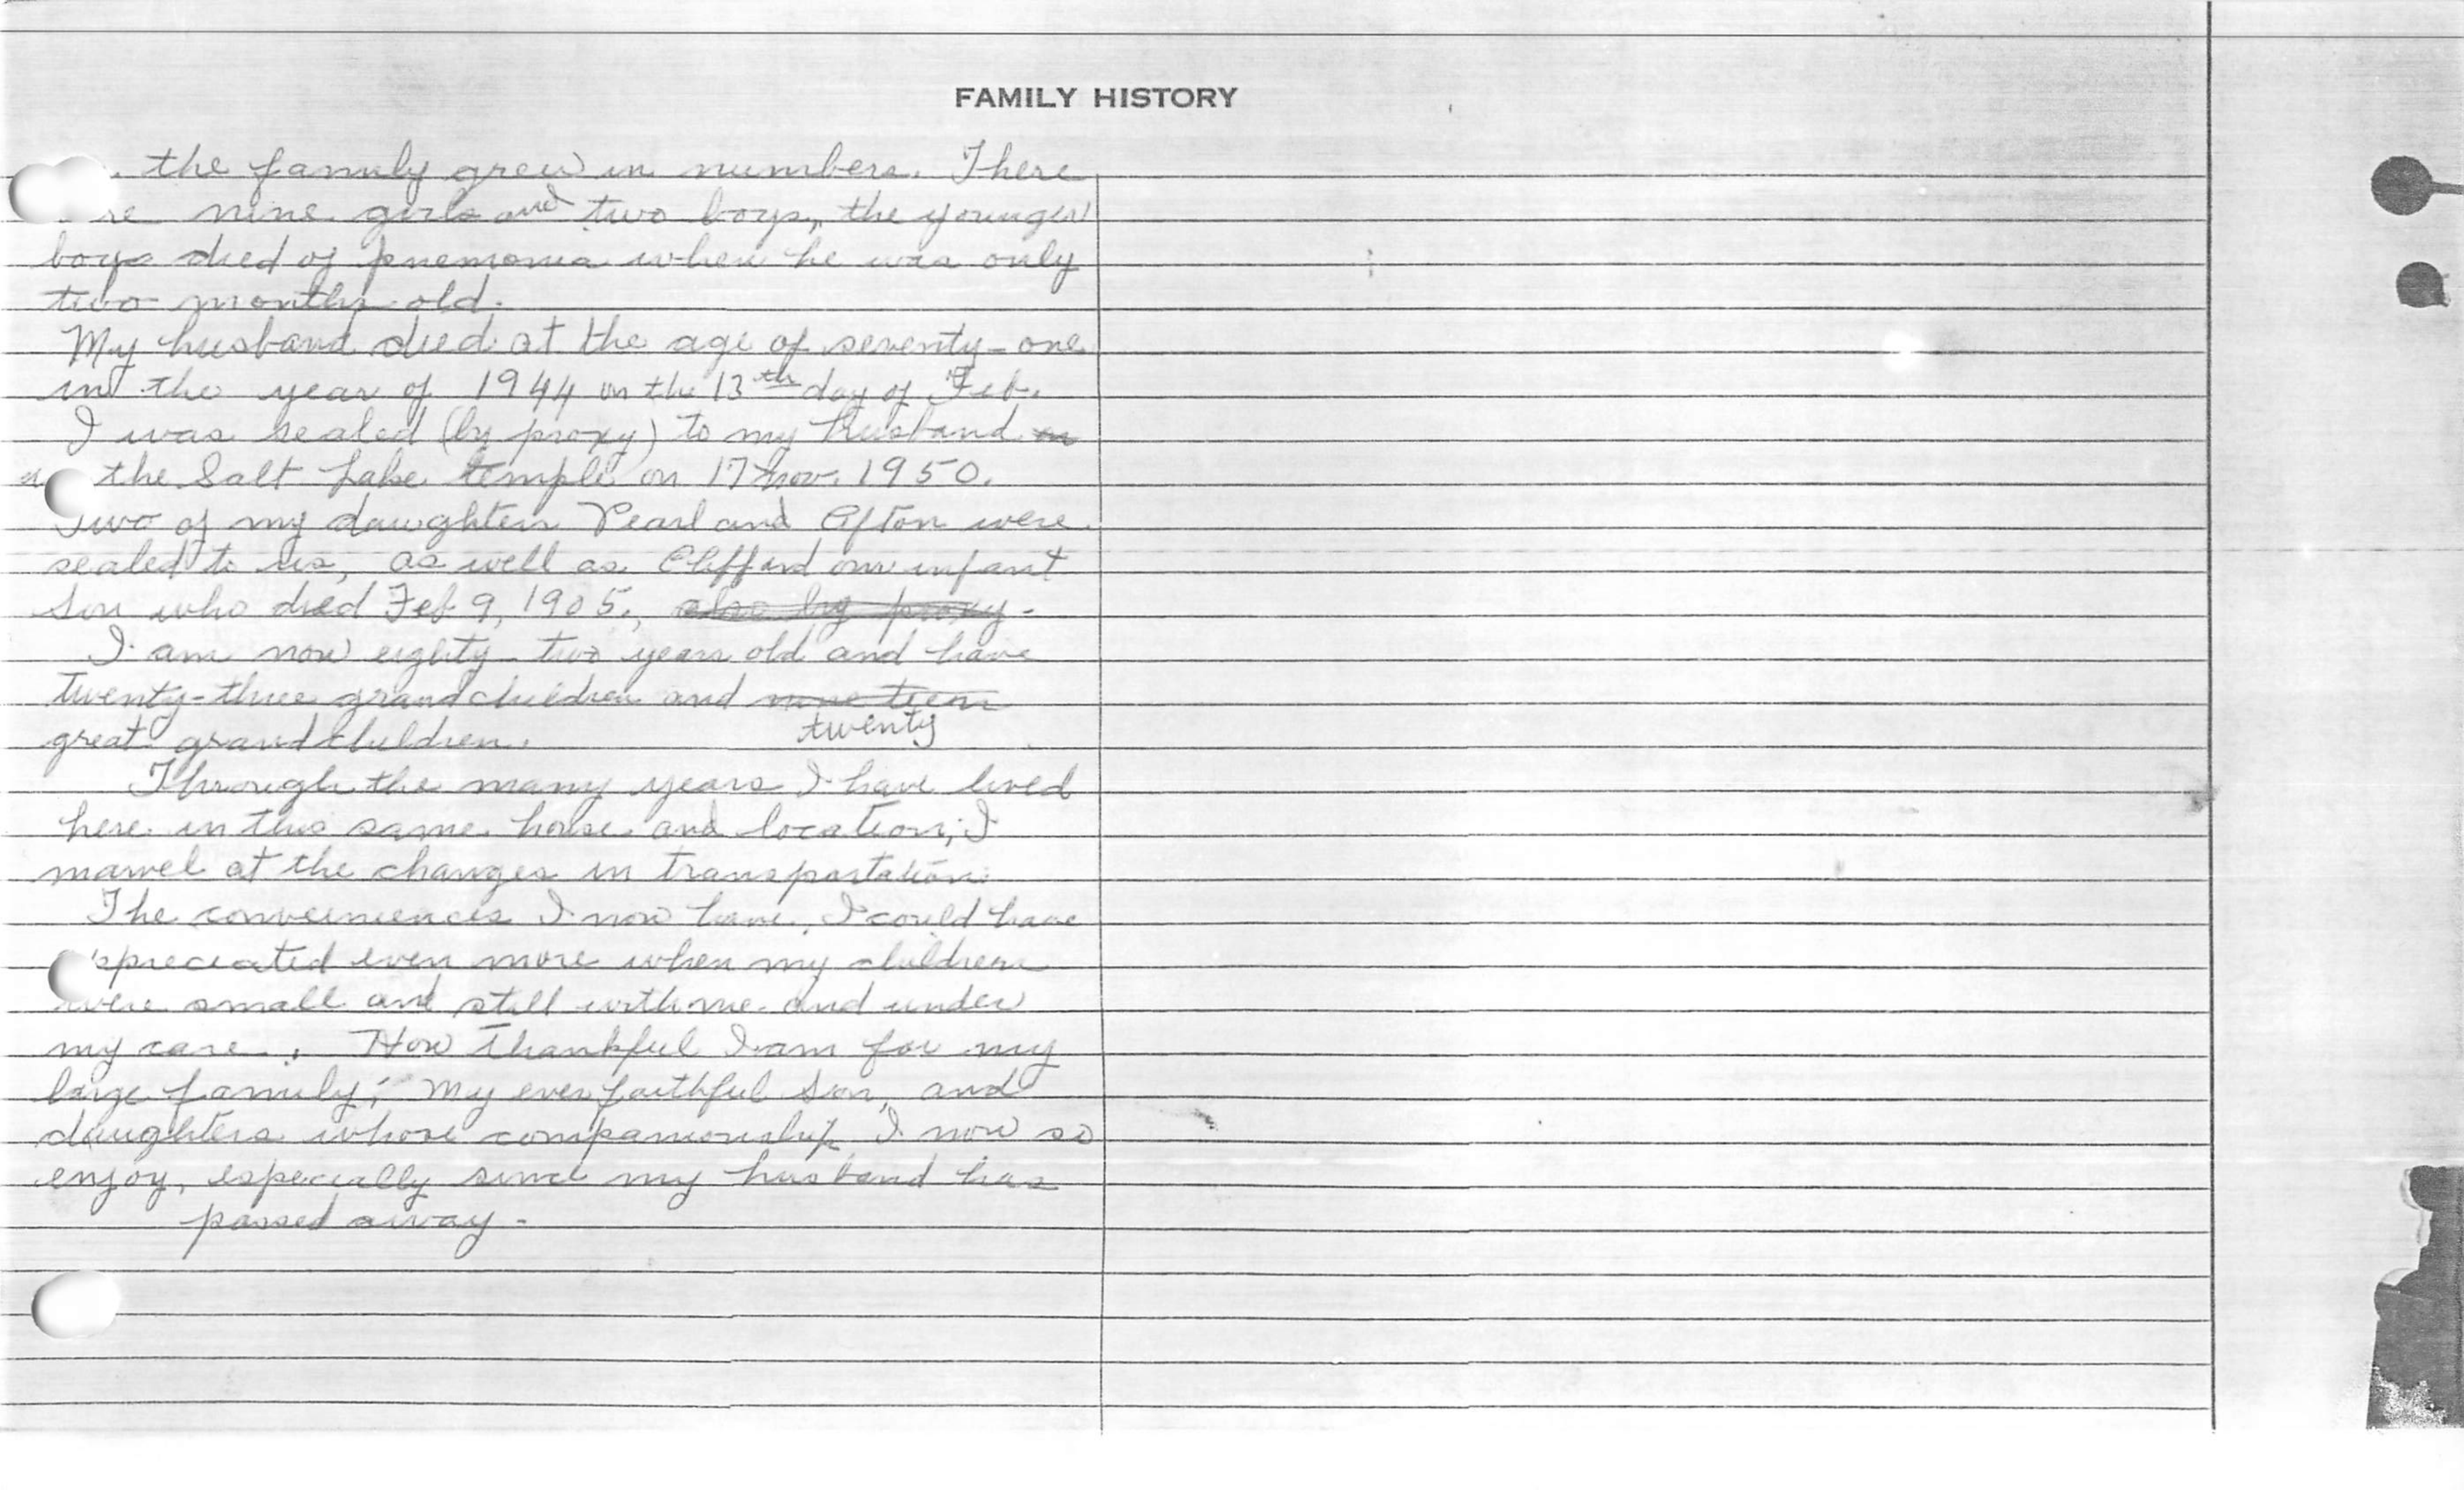 FAMILY HISTORY
. the family grew in numbers. There
re nine girls and two boys, the younger
boys died of pnemonia when he was only
two months old.
My husband died at the age of seventy-one
in the year of 1944 on the 13th day of Feb.
I was sealed (by proxy) to my husband
the Salt Lake temple on 17 Nov. 1950.
Two of my daughters Pearl and Afton were
sealed to us, as well as Clifford our infant
son who died Feb 9, 1905., also by proxy.
I am now eighty-two years old and have
twenty-three grandchildren and nineteen
twenty
great grandchildren.
Through the many years I have lived
here in this same house and location; I
marvel at the changes in transportation.
The conveniences I now have, I could have
appreciated even more when my children
were small and still with me and under
my care. How thankful I am for my
large family; My ever faithful son, and
daughters whose companionship I now so
enjoy, especially since my husband has
passed away -